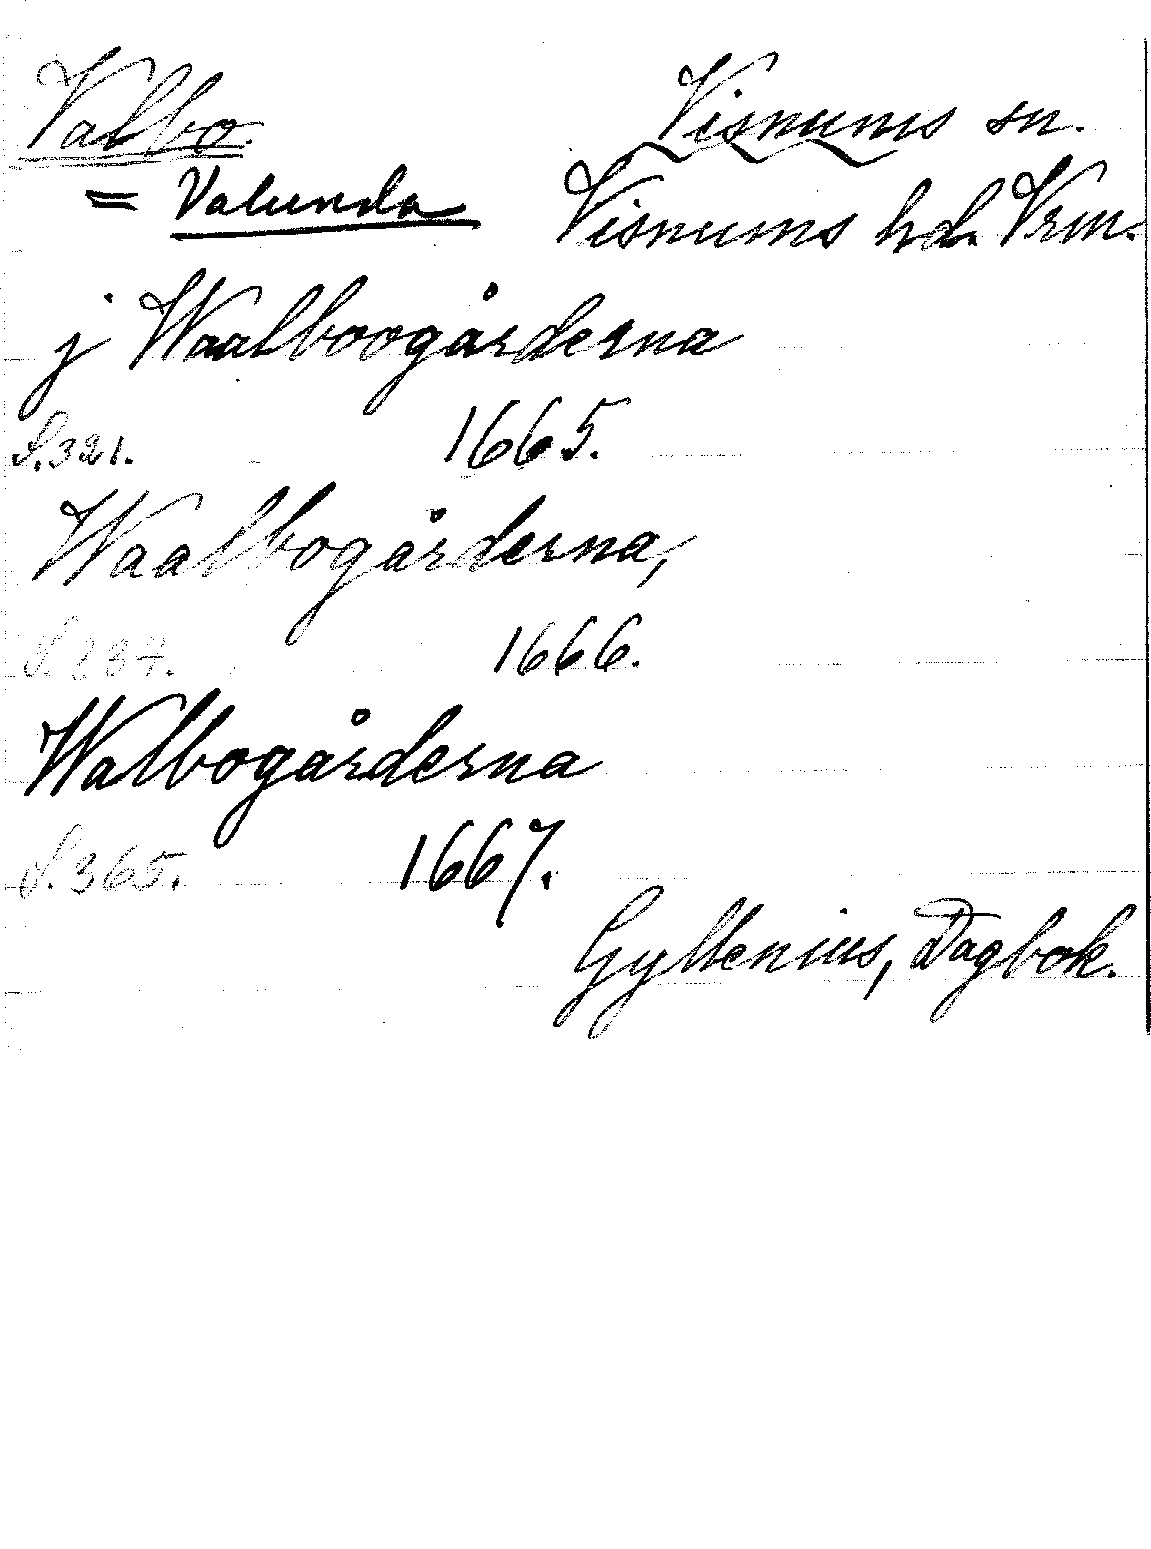 Valbo. Visnums sn.
= Valunda Visnums hd. Vrm.
j Waalboogårderna
S. 321. 1665.
Waalbogårderna,
S. 237. 1666.
Walbogårderna
S. 365. 1667.
Gyllenius, Dagbok.